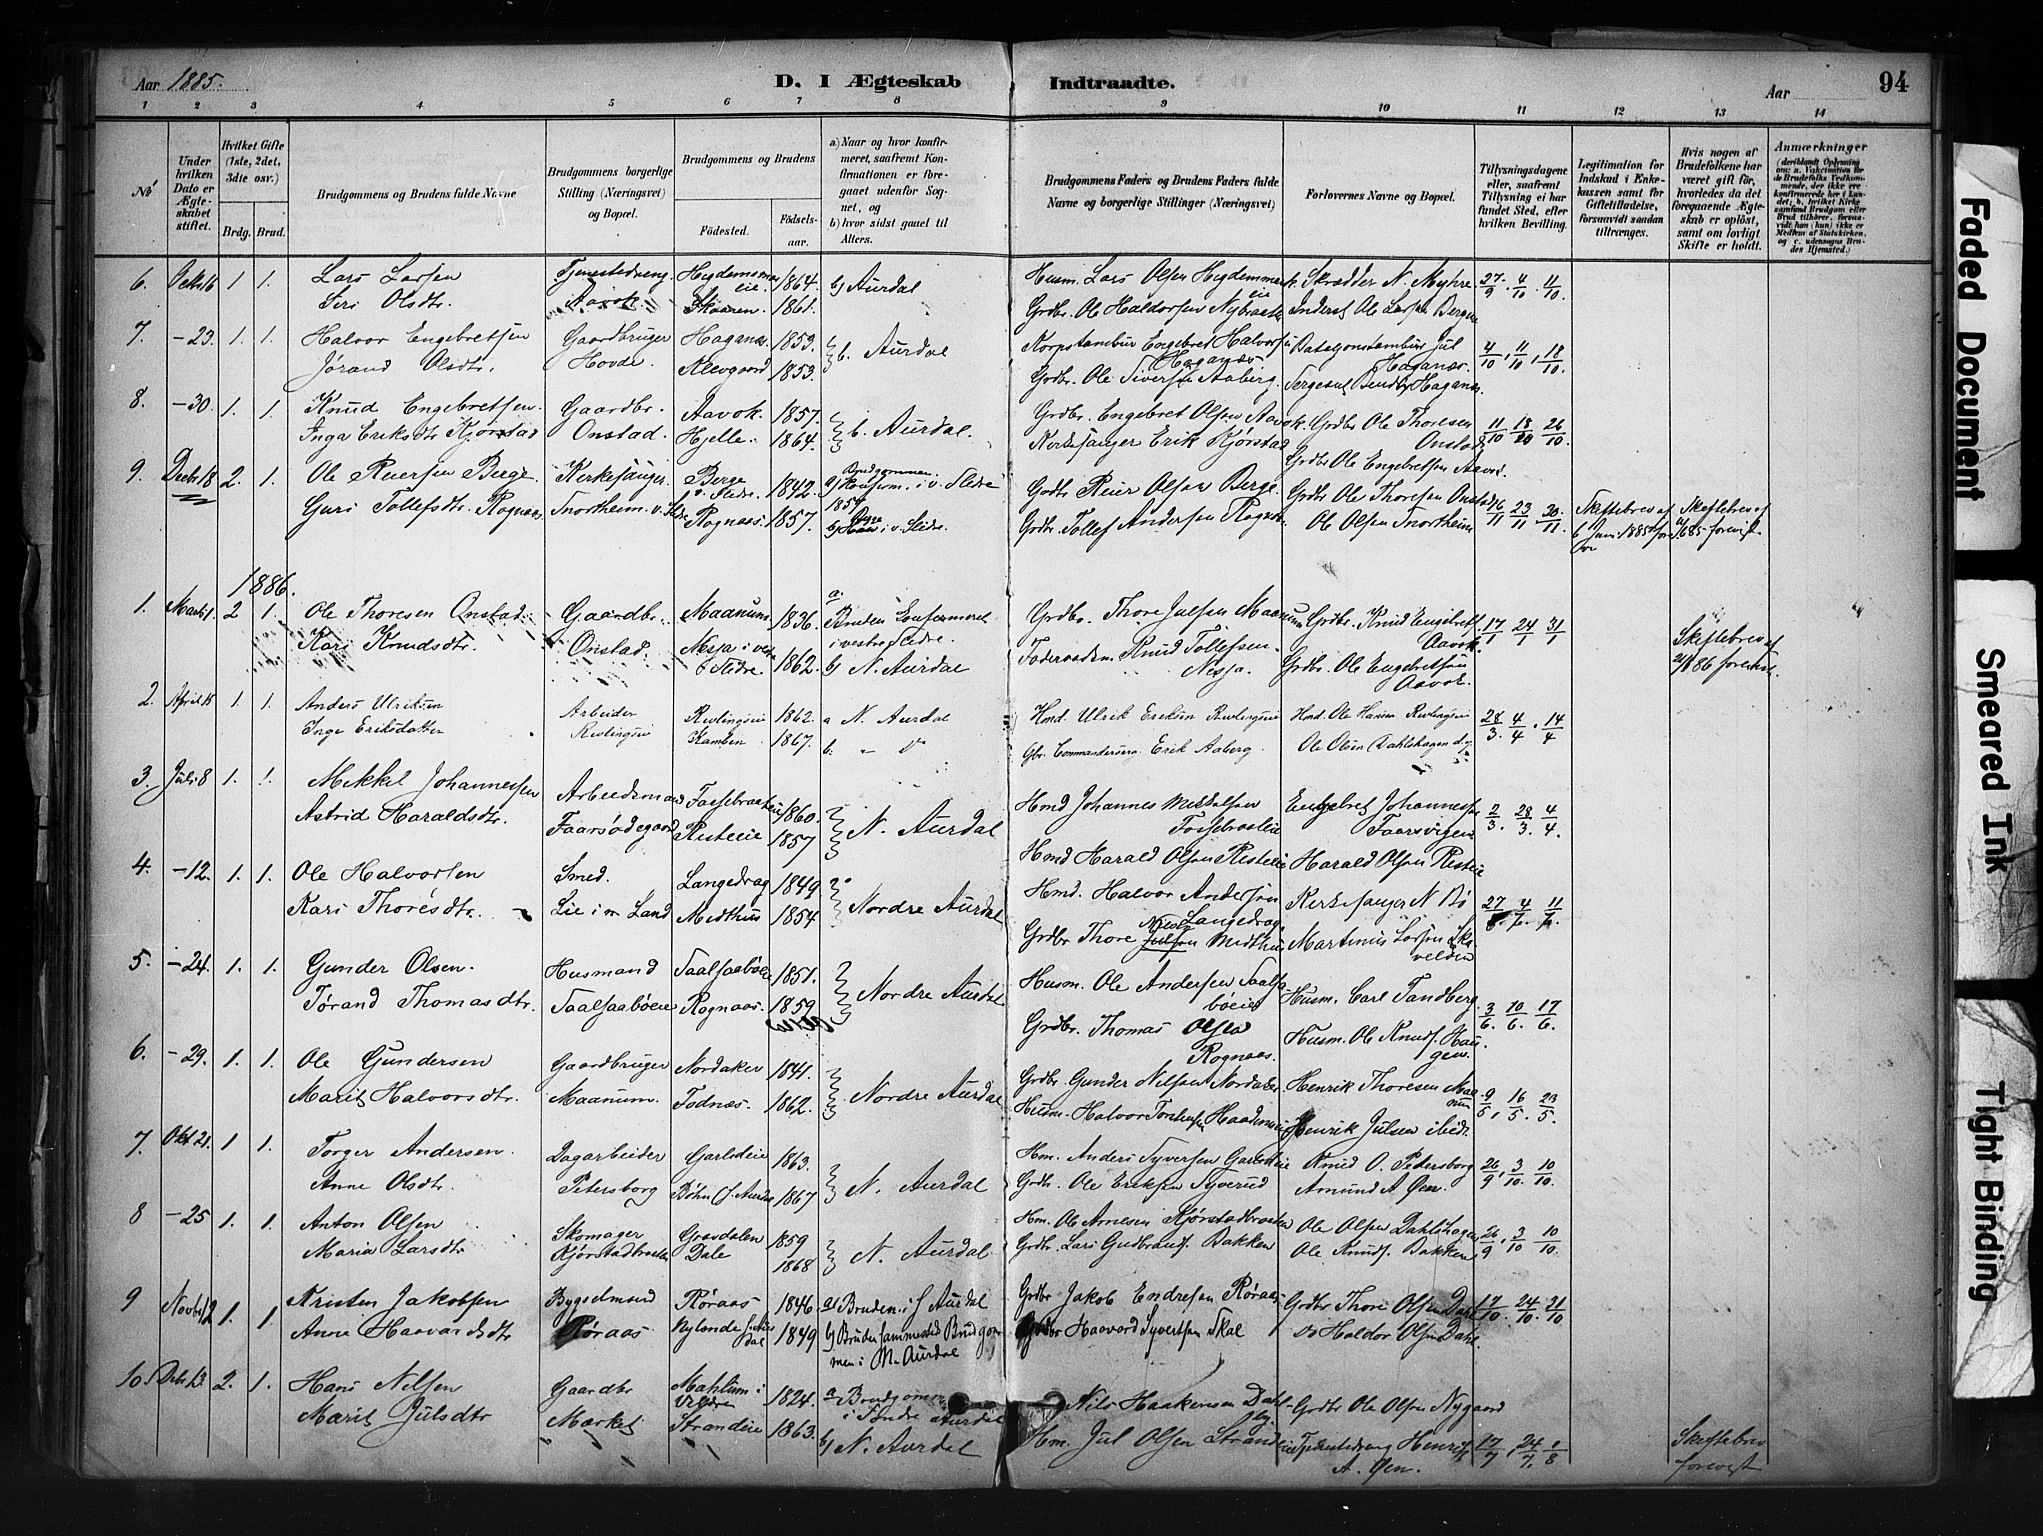 Aar 1885.
D. I Ægteskab Indtraadte.
Aar
94
1 2 3 4 5 6 7 8 9 10 11 12 13 14
No
Under hvilken Dato er Ægteskabet stiftet.
Hvilket Gifte (1ste, 2det, 3die osv.)
Brdg. Brud.
Brudgommens og Brudens fulde Navne
Brudgommens borgerlige Stilling (Næringsvei) og Bopæl.
Brudgommens og Brudens
Födested.
Födselsaar.
a) Naar og hvor konfirmeret, saafremt Konfirmationen er foregaaet udenfor Sognet, og
b) hvor sidst gaaet til Alters.
Brudgommens Faders og Brudens Faders fulde Navne og borgerlige Stillinger (Næringsvei)
Forlovernes Navne og Bopæl.
Tillysningsdagene eller, saafremt Tillysning ei har fundet Sted, efter hvilken Bevilling.
Legitimation for Indskud i Enkekassen samt for Giftetilladelse, forsaavidt saadan tiltrænges.
Hvis nogen af Brudefolkene har været gift för, hvorledes da det foregaaende Ægteskab er oplöst, samt om lovligt Skifte er holdt.
Anmærkninger
6. Octb 16 1 1. Lars Larsen Tjenestedreng 1864. b) Aurdal Husm. Lars Olsen Skrædder N. Myhre 27/9 . 4/10 . 11/10
Siri Olsdtr. Aavok. Skaaren. 1861. Grdbr. Ole Haldorsen Nybraaten Inderst Ole Larsen
7. -23. 1. 1. Halvor Engebretsen Gaardbruger Haganæs 1853. b. Aurdal Korpstambur Engebret Halvorsen Haganæs Bataljonstambur Jul Haganæs. 4/10 , 11/10 , 18/10
Jørand Olsdtr. Hovde. Klevgaard 1853. Grdbr. Ole Siversen Aaberg. Sergeant Haganæs
8. -30. 1. 1. Knud Engebretsen Gaardbr. Aavok. 1857. b. Aurdal. Grdbr. Engebret Olsen Aavok. Grdbr Ole Thoresen Onstad 11/10 18/10 26/10
Inga Eriksdtr Kjørstad Onstad. Hjelle. 1864. Kirkesanger Erik Kjørstad Grdbr Ole Engebretsen Aavok
9. Decbr 18 2. 1. Ole Reiersen Berge. Kirkesanger Berge v. Slidre. 1842. Brudgommen a) Konfirm. i v. Slidre 1857 Grdbr Reier Olsen Berge. Grdbr Ole Thoresen Onstad 16/11 23/11 30/11 Skiftebrev af 6 Juni 1885 Skiftebrev af 6/6 85 forevist.
Guri Tollefsdtr. Rognaas Snortheim v. Slidre Rognaas 1857. b) i v. Slidre. Grdbr. Tollef Andersen Rognaas Ole Olsen Snortheim
1886.
1. Marts 1. 2 1. Ole Thoresen Onstad Gaardbr. Maanum 1836. a. Bruden konfirmeret i vestre Slidre. Grdbr. Thore Julsen Maanum Grdbr. Knud Engebretsen Aavok. 17/1 24/1 31/1 Skiftebrev af 86 forevist.
Kari Knudsdtr. Onstad. Nesja i vest Slidre 1862. b) N. Aurdal Føderaadsm. Knud Tollefsen Nesja. Grdbr. Ole Engebretsen Aavok.
2. April 15 1. 1. Anders Ulriksen Arbeider Revlingseie 1862. a N. Aurdal Hmd. Ulrik Eriksen Revlingseie Hmd. Ole Hansen Revlingseie 28/3 . 4/4 . 14/4
Inge Eriksdatter Revlingseie Kamben 1867. b. " D° Gbr. Commandersserg. Erik Aaberg. Ole Olsen Dahlshagen
3. Juli 8 1. 1. Mikkel Johannessen Arbeidsmand 1860. N. Aurdal Hmd Johannes Mikkelsen Engebret Johannessen Faarsvigen 2/3 . 28/3 . 4/4
Astrid Haraldsdtr. Faarsødegaard Risteeie 1857 Hmd Harald Olsen Risteeie Harald Olsen Risteeie
4. -12. 1. 1. Ole Halvorsen Smed. Langedrag 1849 Nordre Aurdal Hmd. Halvor Andersen Langedrag Kirkesanger N Bø 27/5. 4/6. 11/6.
Kari Thoresdtr. Lie i n. Land Midthus 1854 Grdbr Thore Nielsen Midthus Martinus Larsen
5. -24. 1. 1. Gunder Olsen. Husmand Saalsaabøeie 1851. Nordre Aurdal Husm. Ole Andersen Saalsaabøeie Husm. Carl Tandberg 3/6. 10/6. 17/6.
Tørand Thomasdtr. Saalsaabøeie Rognaas. 1859 Grdbr. Thomas Olsen Rognaas. Husm. Ole Knuds. Haugen.
6. -29. 1. 1. Ole Gundersen Gaardbruger Nordaker 1841. Nordre Aurdal Grdbr. Gunder Nilsen Nordaker Henrik Thoresen Maanum 9/5, 16/5. 23/5.
Marit Halvorsdtr. Maanum. Fodnæs. 1862. Husm. Halvor Torstensen Henrik Julsen ibid.
7. Okt 21. 1 1. Torger Andersen. Dagarbeider Garlideie 1863. N. Aurdal Hm. Anders Syversen Garlideie Knud O. Petersborg 26/9. 3/10. 10/10.
Anne Olsdtr. Petersborg Bøhn S. Aurdal 1867 Grdbr. Ole Eriksen Syverud Amund A Øen.
8 -25 1. 1. Anton Olsen Skomager Gravdalen 1859 N. Aurdal. Hm. Ole Arnesen Kjørstadbraaten Ole Olsen Dahlshagen 26/9. 3/10 10/10.
Maria Larsdtr Kjørstadbraaten Dale 1868 Grdbr. Lars Gudbrands. Bakken Ole Knuds. Bakken
9 Novbr 12 1. 1. Kristen Jakobsen Bygselmand Røraas 1846 a) Bruden i S. Aurdal Grdbr Jakob Endresen Røraas Grdbr Thore Olsen Dahl 17/10. 24/10. 31/10
Anne Haavardsdtr Røraas. Nylende 1849 b) Bruden sammested Brudgommen i N. Aurdal Grdbr Haavard Syvertsen Skal do Haldor Olsen Dahl.
10. Debr 13. 2. 1. Hans Nilsen Gaardbr Mahlum i 1824. a Brudgommen i Søndre Aurdal Nils Haakensen Dahl Grdbr Ole Olsen Nygaard
Marit Julsdtr Market Strandeie 1863. b) N. Aurdal Hm. Jul Olsen Strandeie Tjenestedreng Henrik A. Øen. 17/7, 24/7. 1/8 Skiftebrev forevist
Faded Document
Smeared Ink
Tight Binding